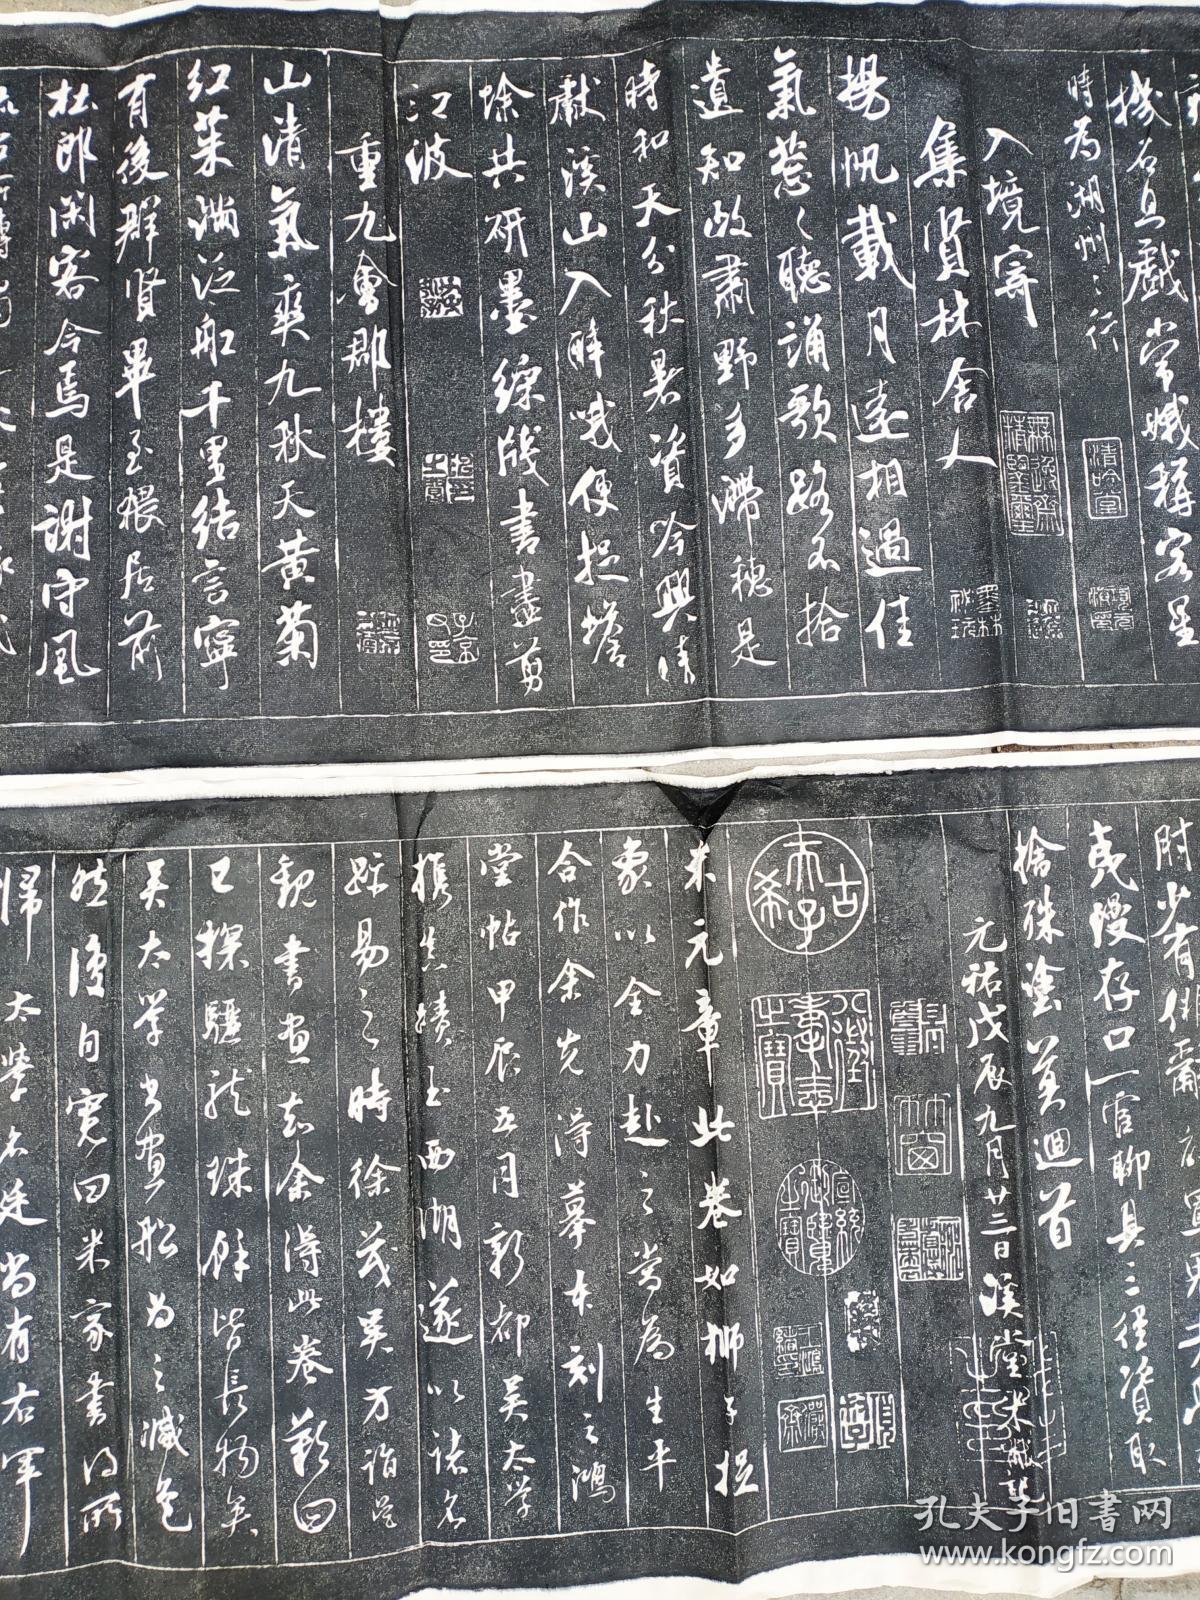 機名且戲常娥稱客星
時為湖州之行
入境寄
集賢林舍人
揚帆載月遠相過佳
氣蔥〻聽誦歌路不拾
遺知政肅野多滯穗是
時和天分秋暑資吟興晴
獻溪山入醉哦便捉蟾
蜍共研墨綵牋書盡剪
江波
重九會郡樓
山清氣爽九秋天黃菊
紅茱滿泛船千里結言寧
有後群賢畢至猥居前
杜郎閑客今焉是謝守風
肘少有俳辭
戔戔存口一官聊具三徑資取
捨殊塗莫迴首
元祐戊辰九月廿三日溪堂米黻記
古希天子
八徵耄念之寶
宣統御覽之寶
米元章此卷如獅子捉
象以全力赴之當為生平
合作余先得摹本刻之鴻
堂帖甲辰五月新都吳太學
攜真蹟至西湖遂以諸名
跡易之時徐茂吳方詣吳
觀書畫知余得此卷歎曰
已探驪龍珠餘皆長物矣
吳太學書畫船為之減色
然後自寬曰米家書得所
歸太學名廷尚有右軍
孔夫子旧书网
www.kongfz.com